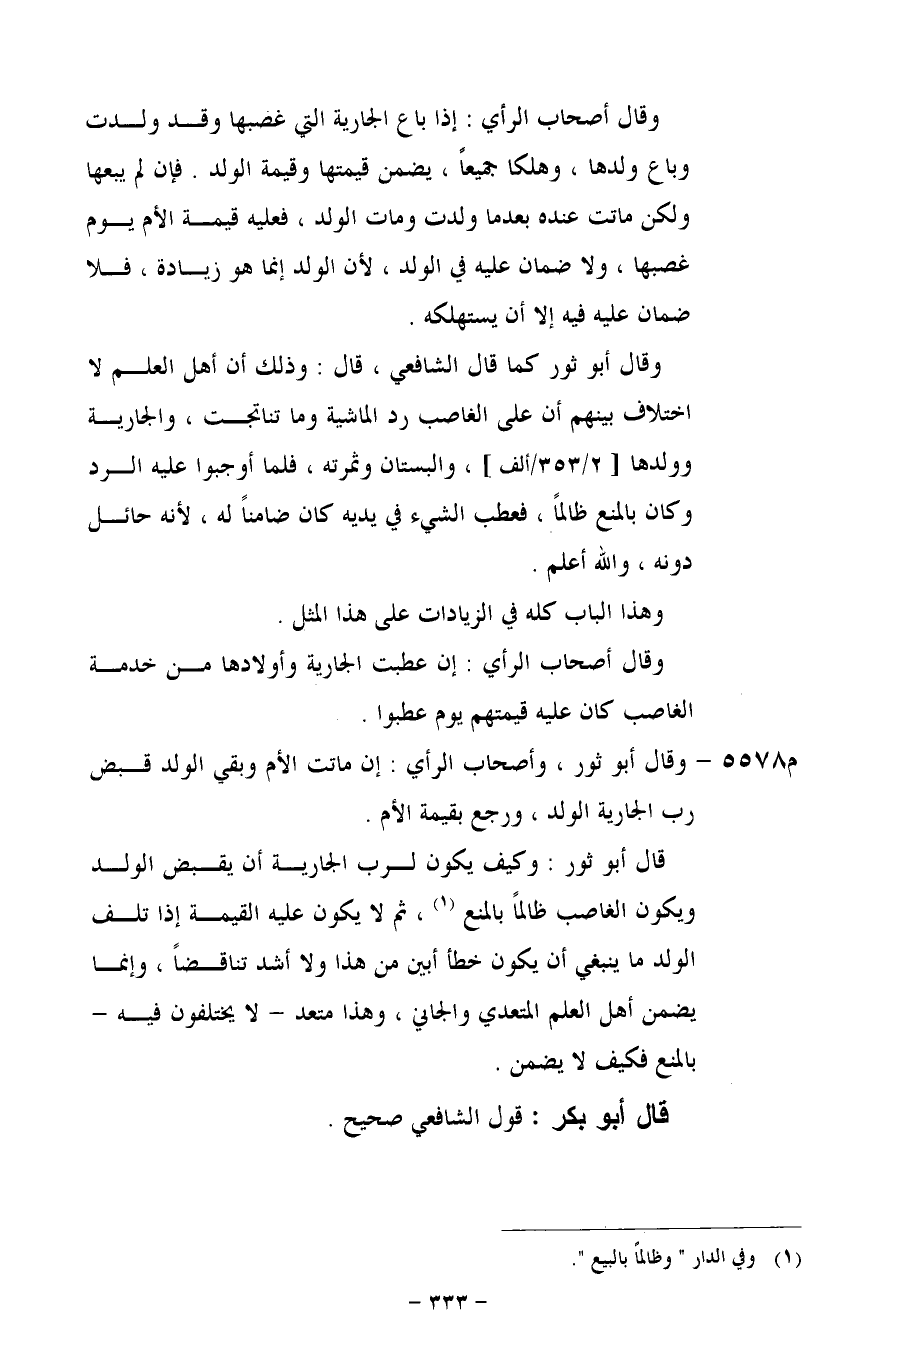 وقال أصحاب الرأي : إذا باع الجارية التي غصبها وقد ولدت
وباع ولدها ، وهلكا جميعاً ، يضمن قيمتها وقيمة الولد . فإن لم يبعها
ولكن ماتت عنده بعدما ولدت ومات الولد ، فعليه قيمة الأم يوم
غصبها ، ولا ضمان عليه في الولد ، لأن الولد إنما هو زيادة ، فلا
ضمان عليه فيه إلا أن يستهلكه .
وقال أبو ثور كما قال الشافعي ، قال : وذلك أن أهل العلم لا
اختلاف بينهم أن على الغاصب رد الماشية وما تناتجت ، والجارية
وولدها [ ٣٥٣/٢/ألف ] ، والبستان وثمرته ، فلما أوجبوا عليه الرد
وكان بالمنع ظالماً ، فعطب الشيء في يديه كان ضامناً له ، لأنه حائل
دونه ، والله أعلم .
وهذا الباب كله في الزيادات على هذا المثل .
وقال أصحاب الرأي : إن عطبت الجارية وأولادها من خدمة
الغاصب كان عليه قيمتهم يوم عطبوا .
م٥٥٧٨ – وقال أبو ثور ، وأصحاب الرأي : إن ماتت الأم وبقي الولد قبض
رب الجارية الولد ، ورجع بقيمة الأم .
قال أبو ثور : وكيف يكون لرب الجارية أن يقبض الولد
ويكون الغاصب ظالماً بالمنع (١) ، ثم لا يكون عليه القيمة إذا تلف
الولد ما ينبغي أن يكون خطأ أبين من هذا ولا أشد تناقضاً ، وإنما
يضمن أهل العلم المتعدي والجاني ، وهذا متعد – لا يختلفون فيه –
بالمنع فكيف لا يضمن .
قال أبو بكر : قول الشافعي صحيح .
(١) وفي الدار " وظالماً بالبيع ".
– ٣٣٣ –